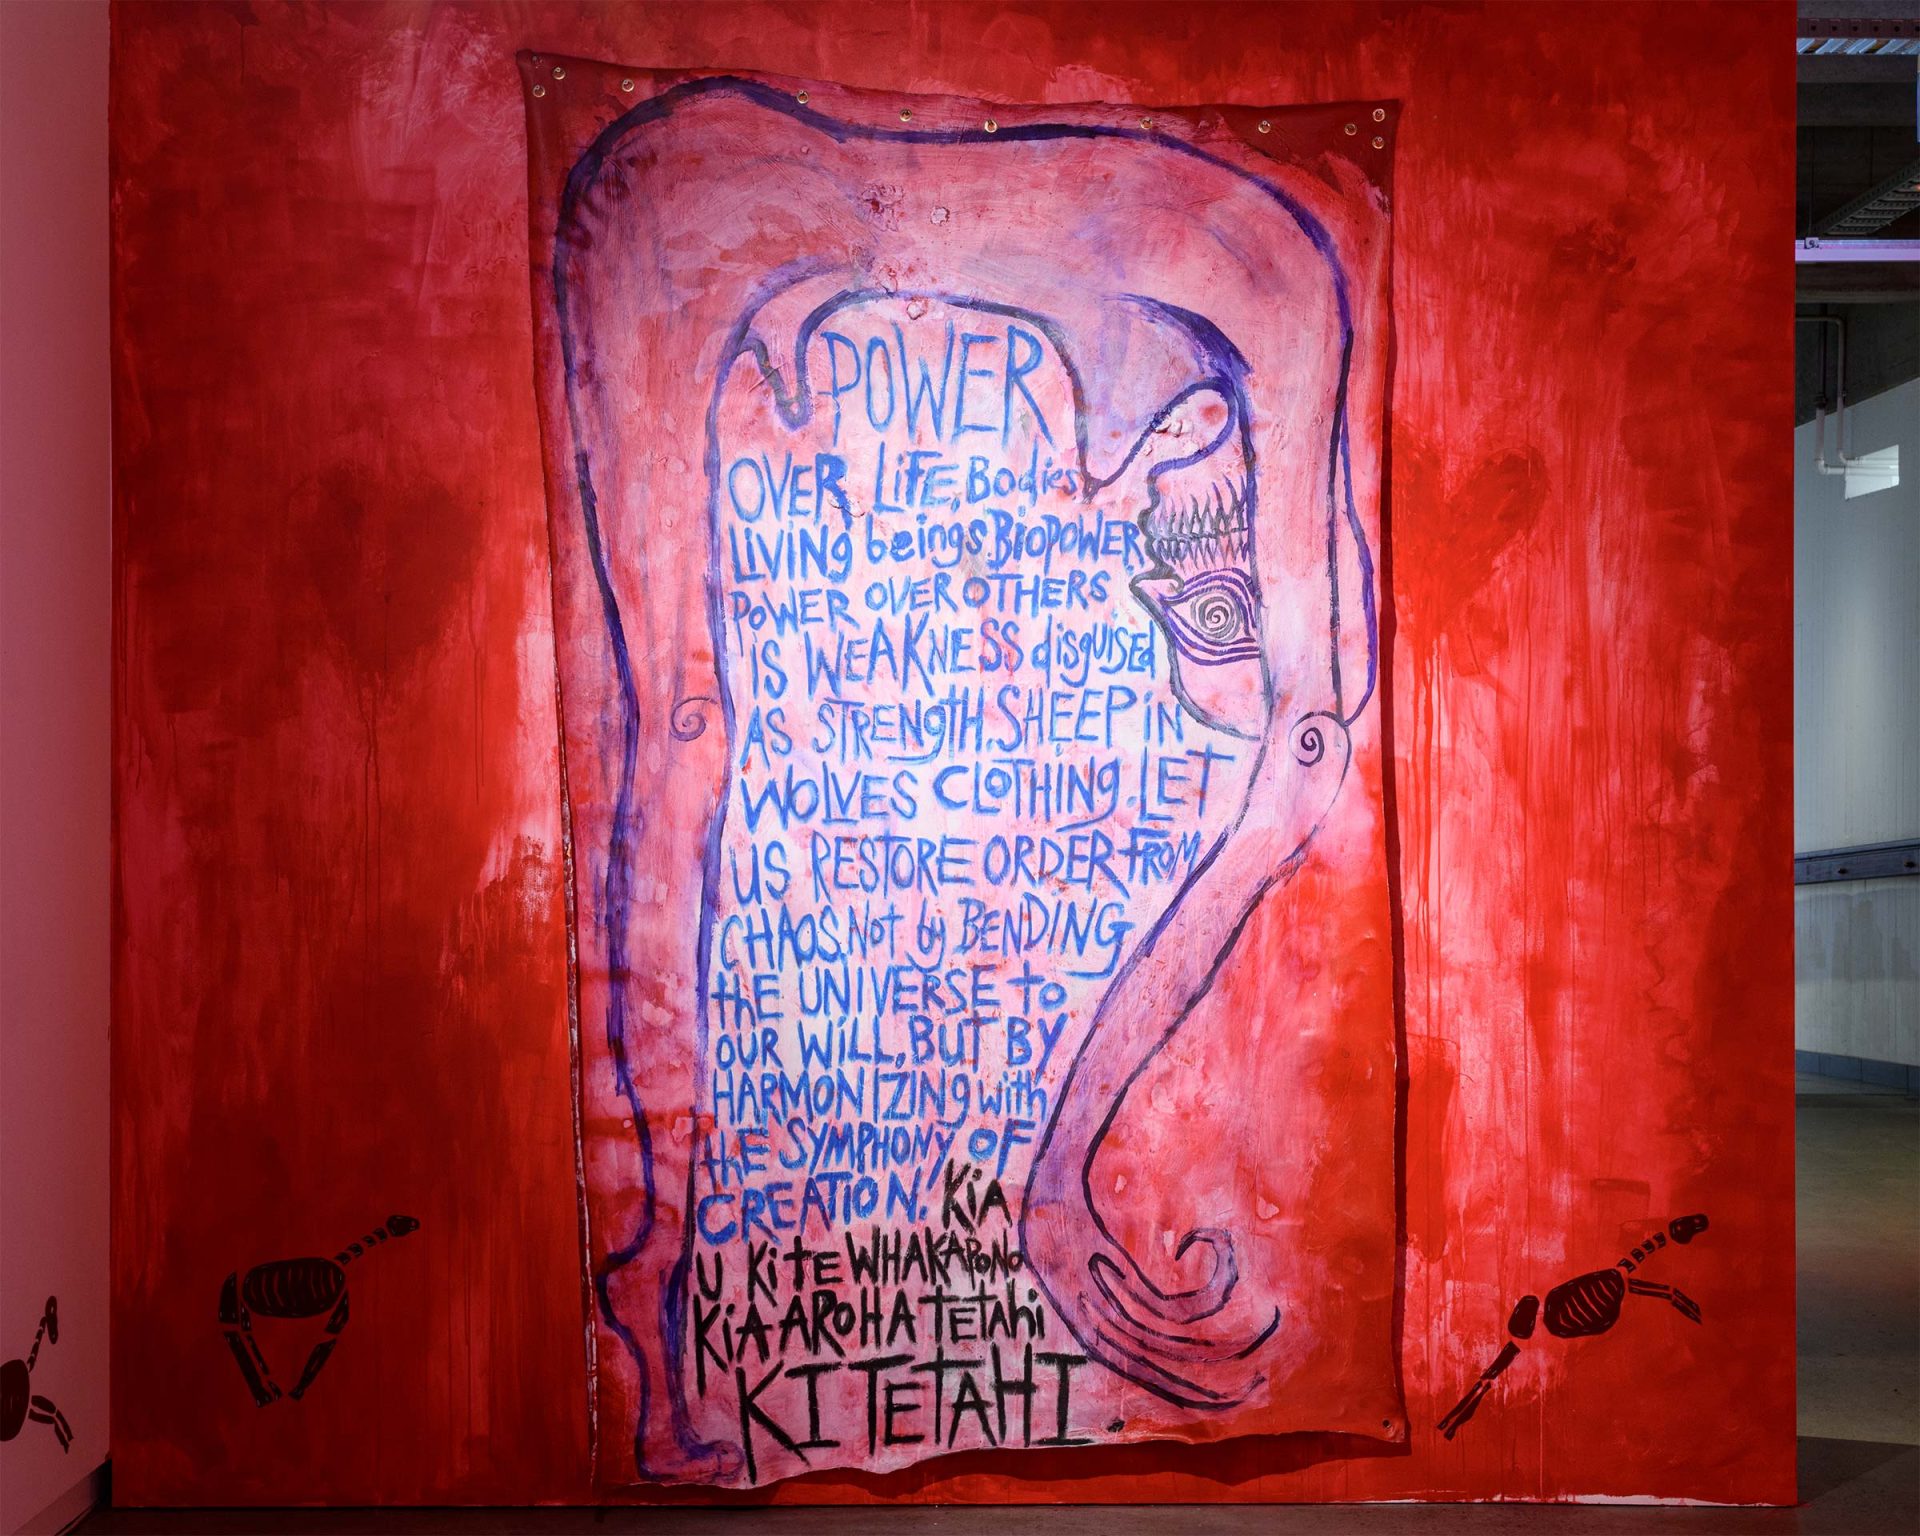 POWER
OVER LiFE, Bodies,
LiViNg beings. BioPOWER
POWER OVER OTHERS
iS WEAKNESS disguised
AS STRENGTH. SHEEP iN
WOLVES CLOTHiNg. LET
US RESTORE ORDER FROM
CHAOS. Not by BENDiNG
thE UNiVERSE to
OUR WiLL, BUT BY
HARMONIZiNg with
thE SYMPHONY OF
CREATiON! KiA
U Ki tE WHAKAPONO
KiA AROHA TETAhi
KI TETAHI